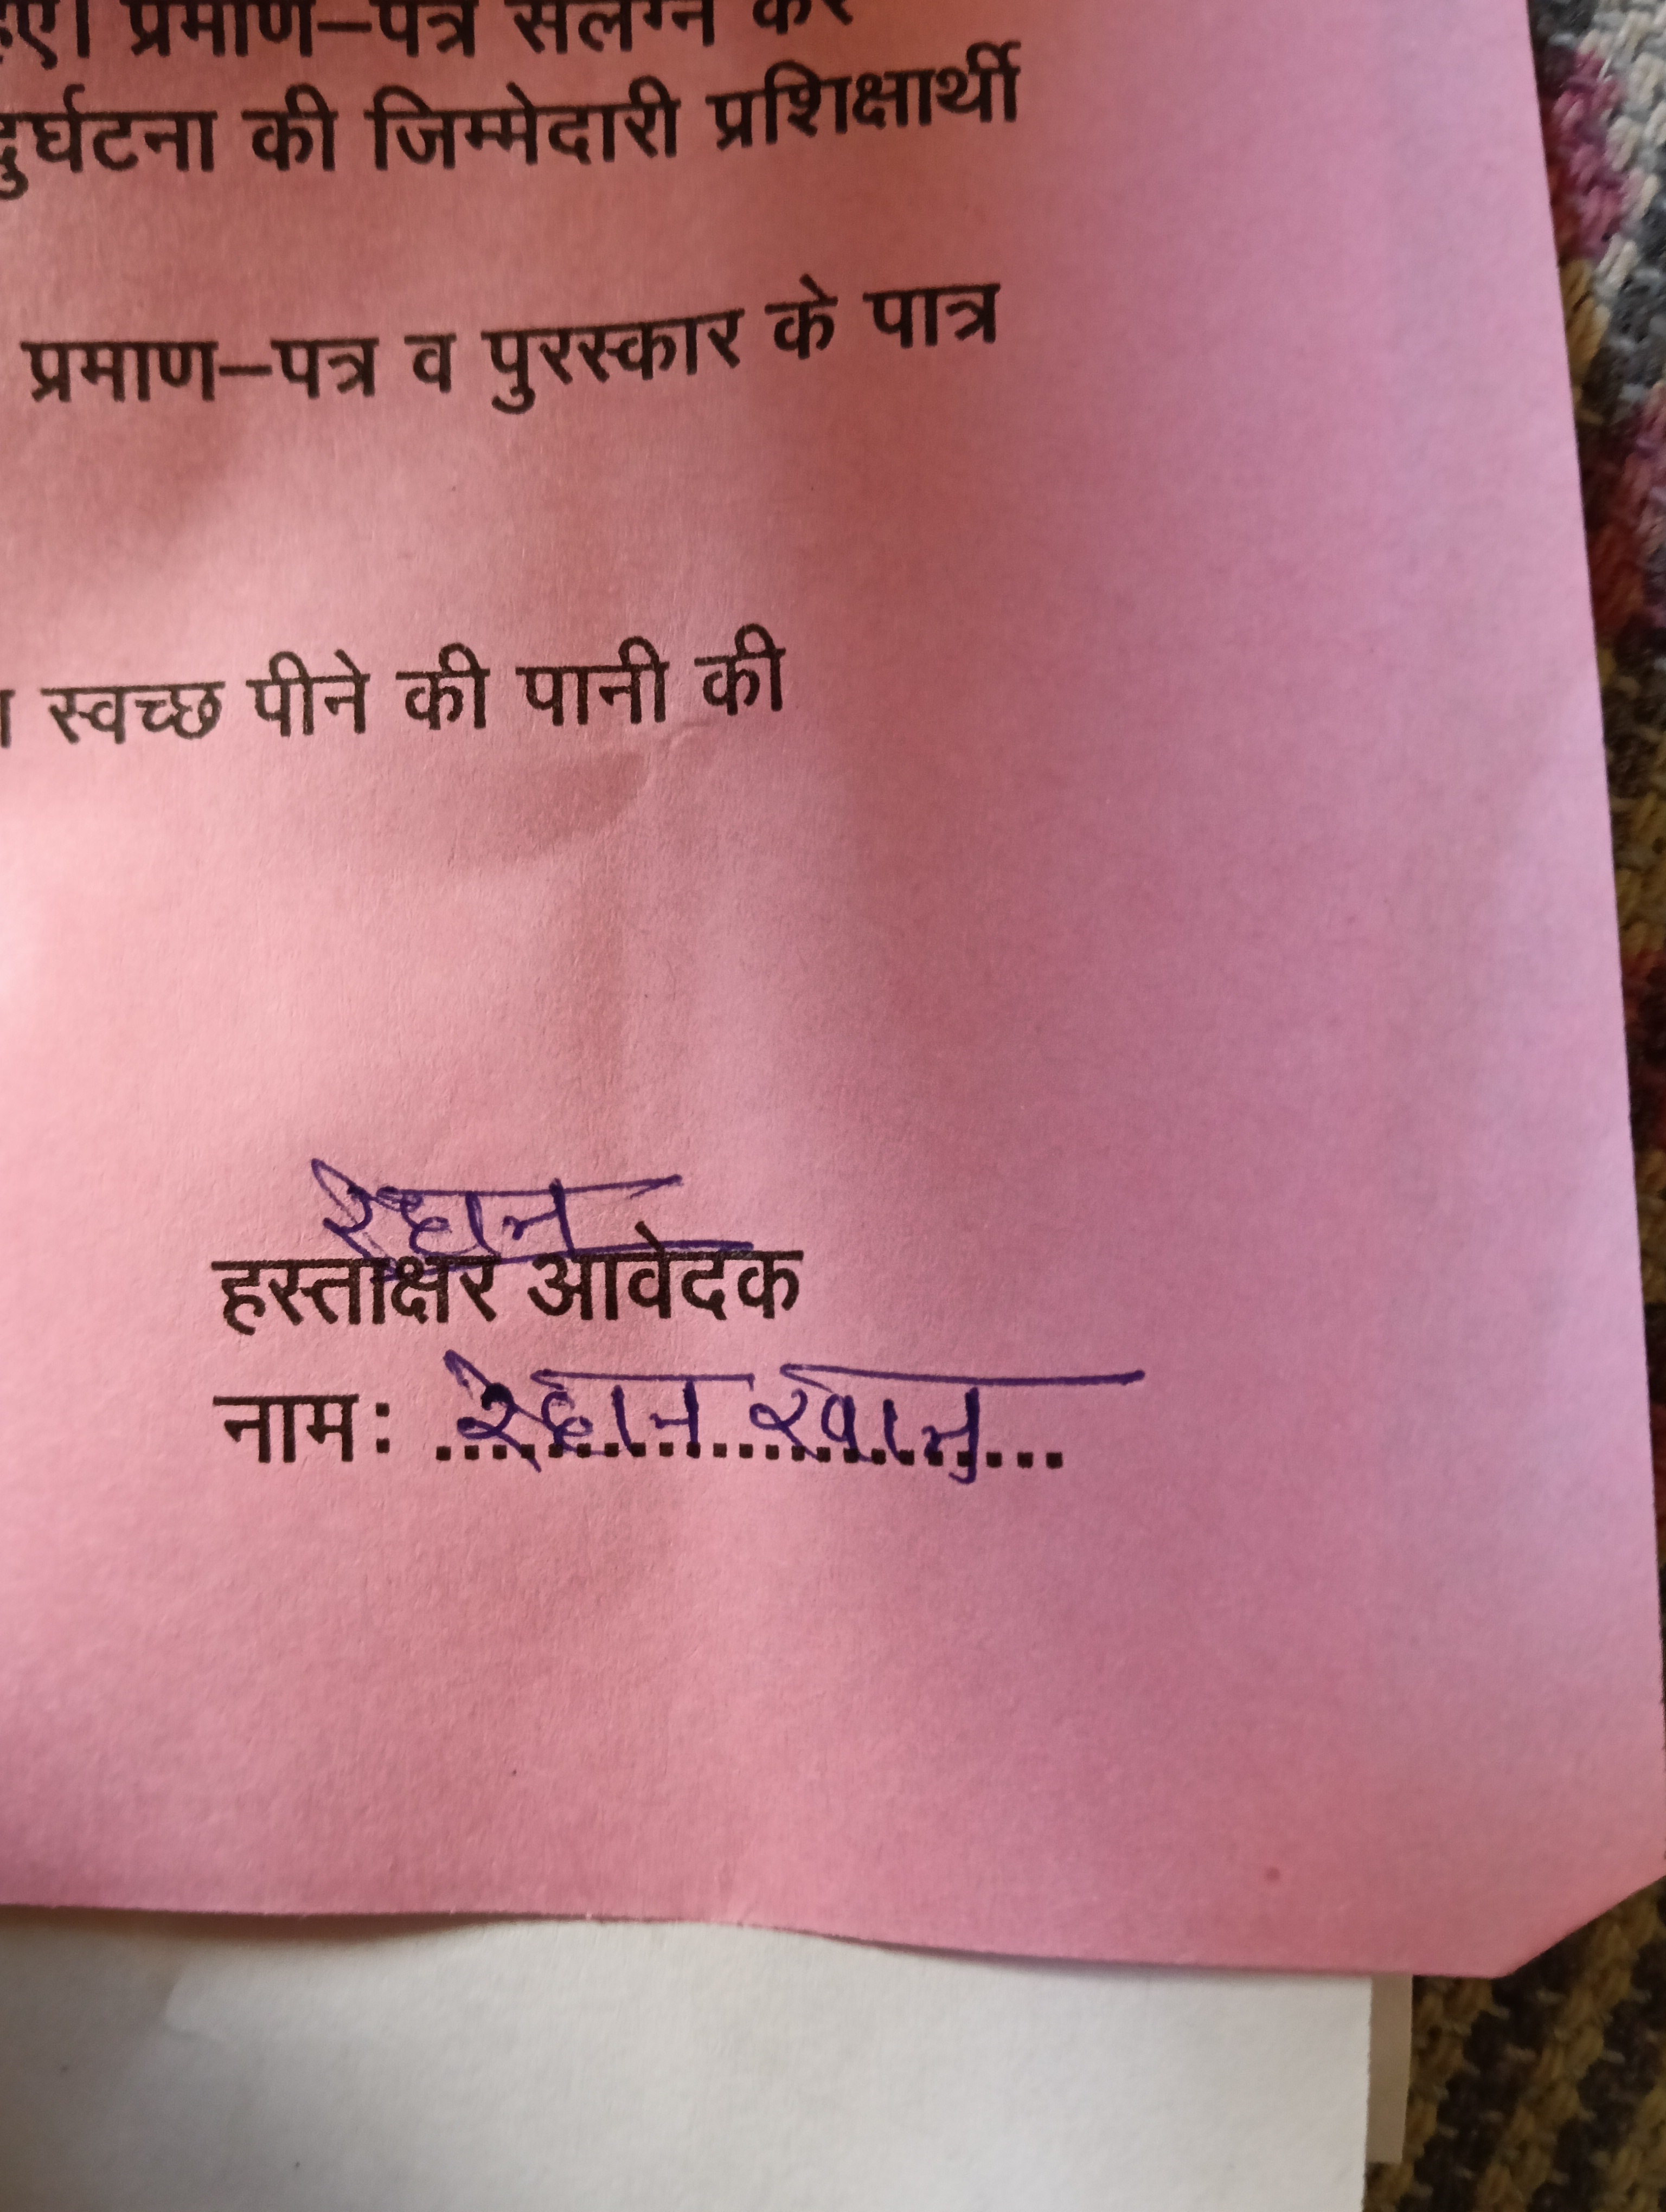 प्रमाण–पत्र संलग्न
दुर्घटना की जिम्मेदारी प्रशिक्षार्थी
प्रमाण–पत्र व पुरस्कार के पात्र
स्वच्छ पीने की पानी की
रेहान
हस्ताक्षर आवेदक
नामः रेहान खान